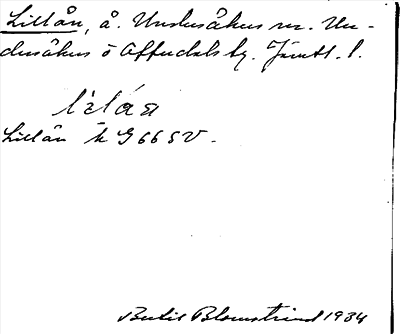 Lillån, å. Undersåkers sn. Un-
dersåkers o Offerdals tg. Jämtl. l.
lìlán
Lillån k G 66 SV.
Bertil Blomstrand 1934